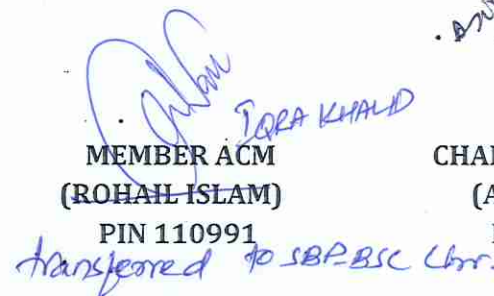 IQRA KHALID
MEMBER ACM CHAI
(ROHAIL ISLAM) (A
PIN 110991
transferred to SBP-BSC